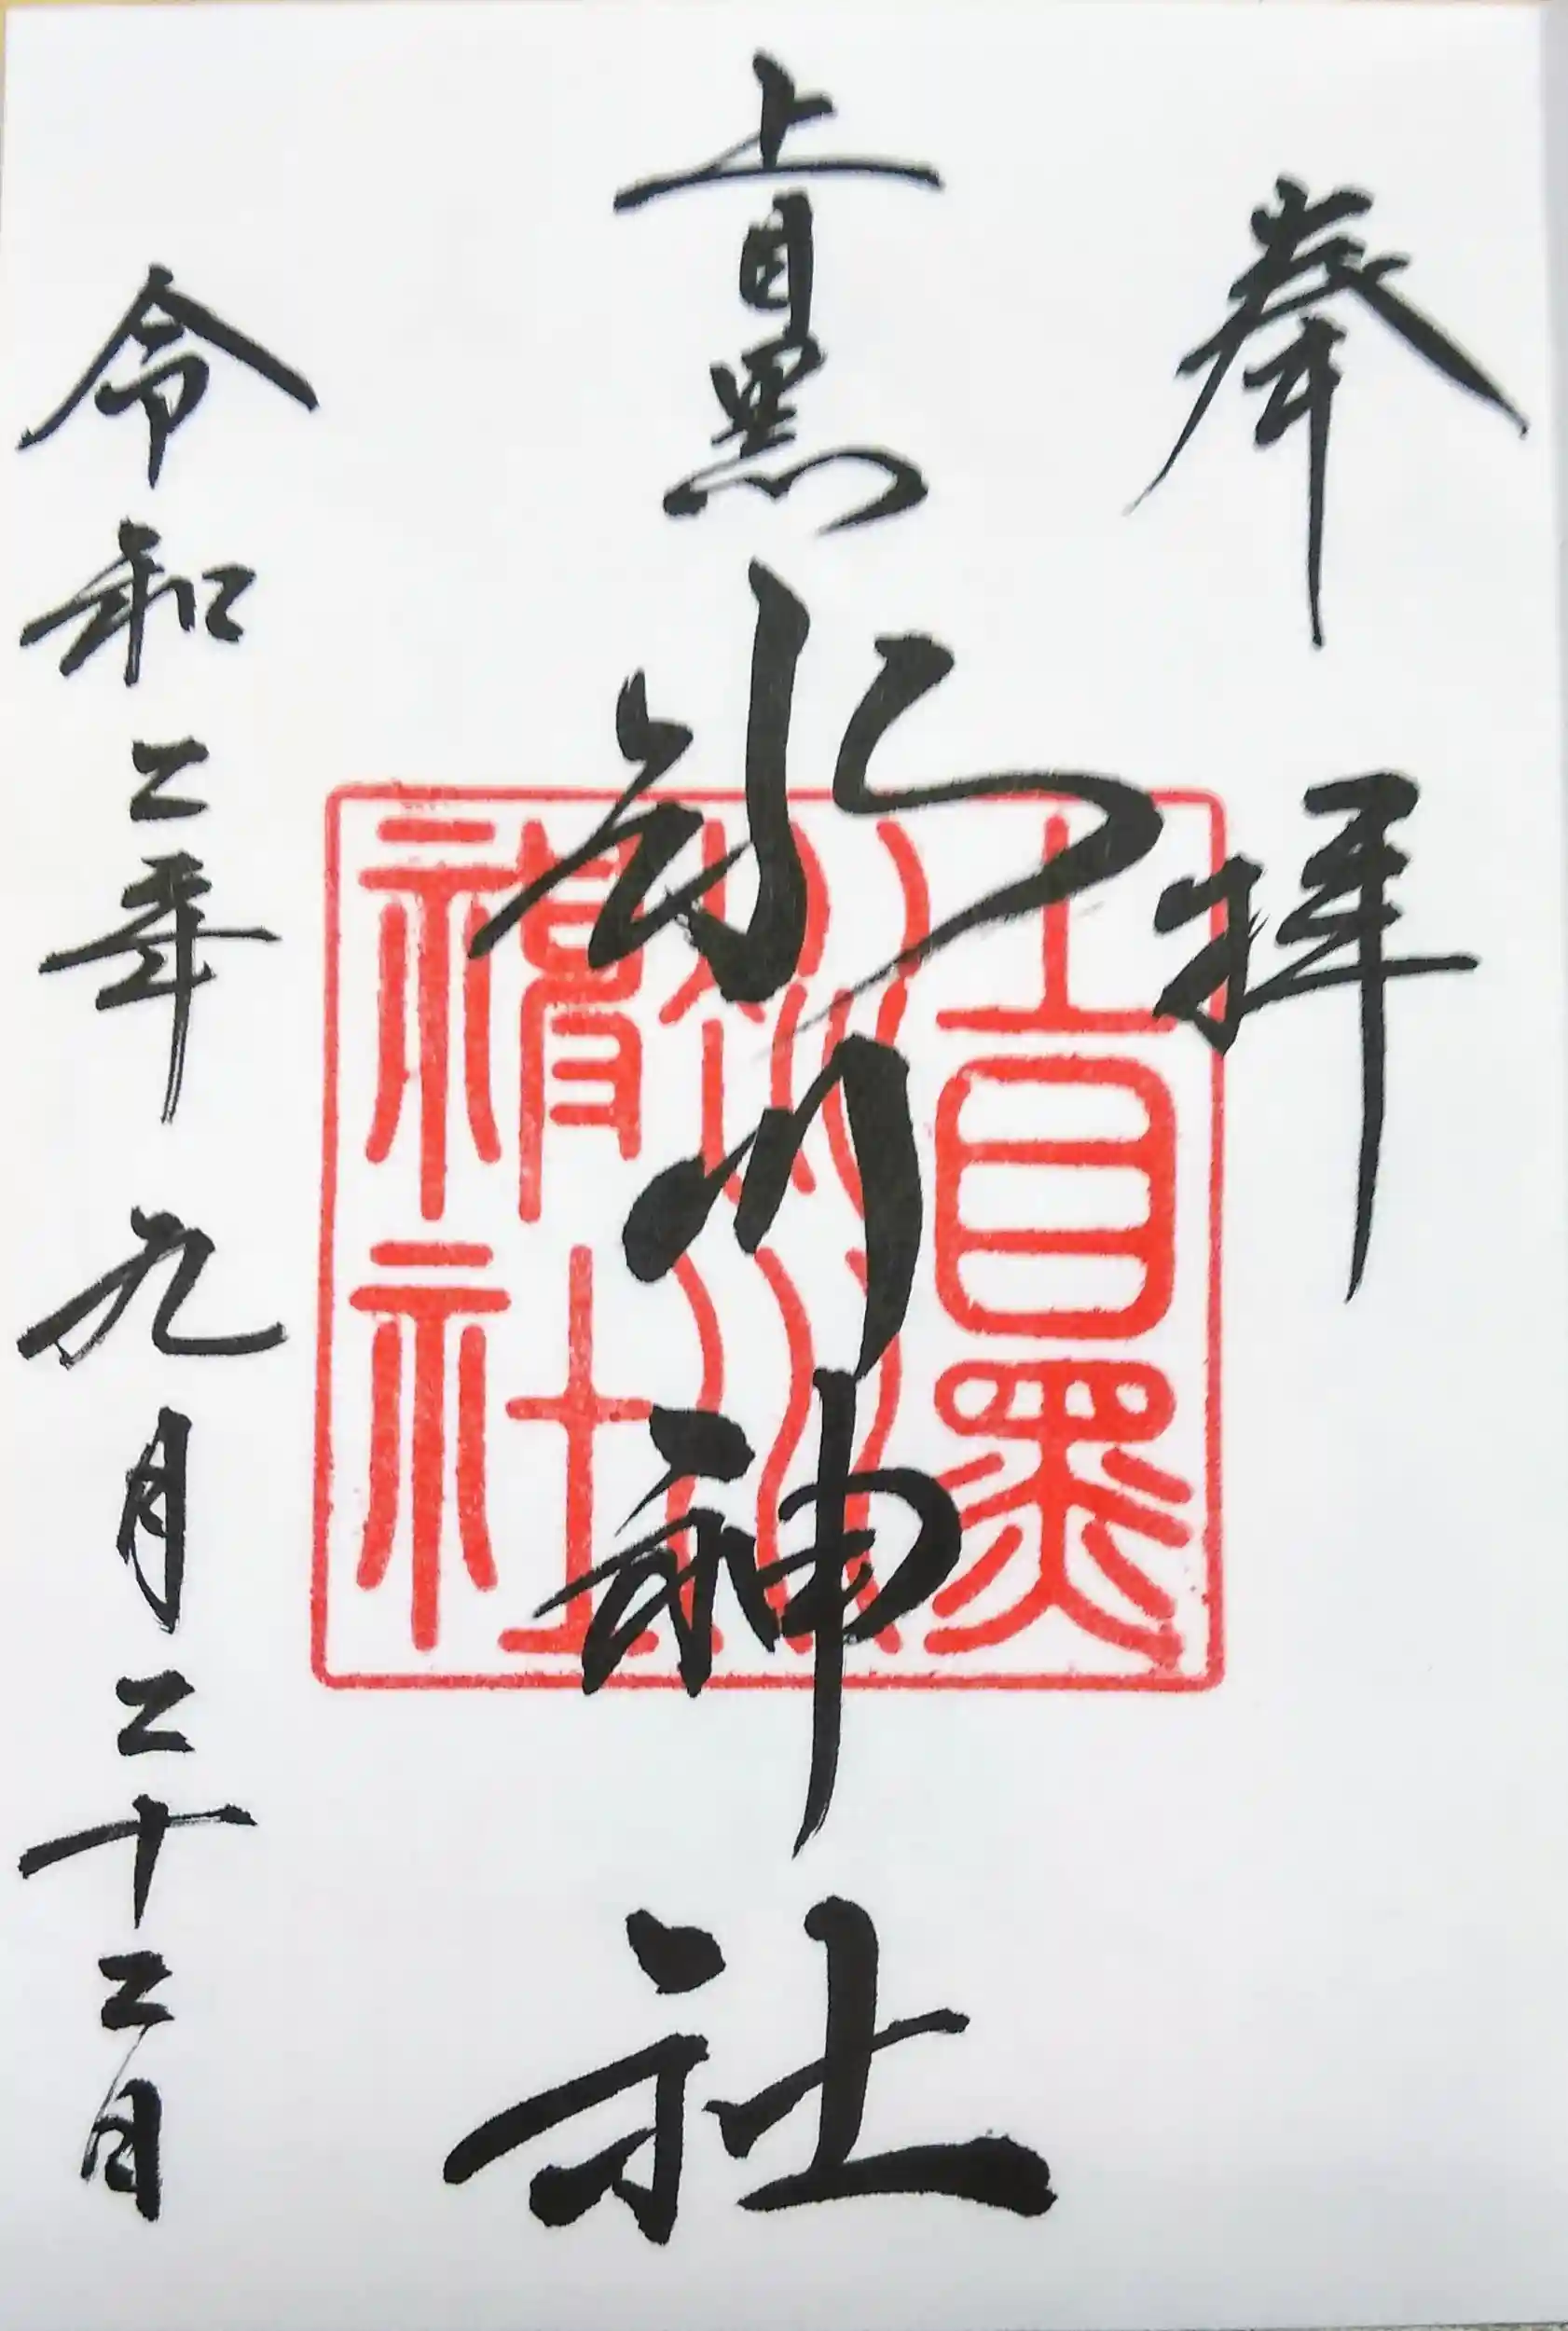 奉拝
上目黒
氷川神社
上目黒
氷川
神社
令和二年九月二十二日